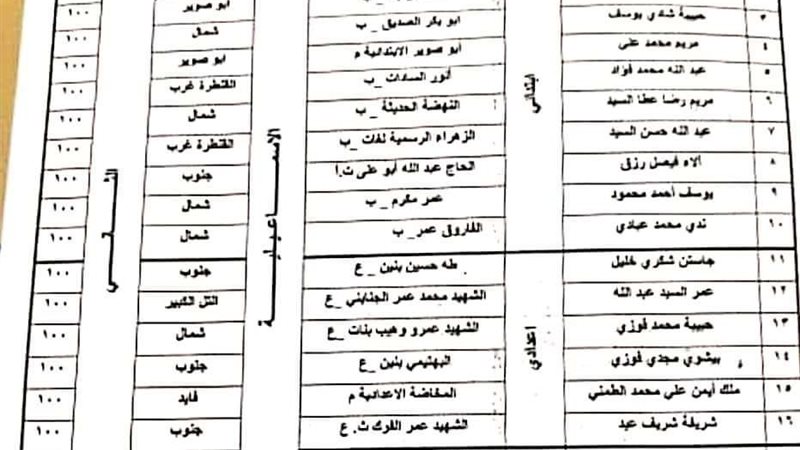 أبو صوير ١٠٠
٣ حبيبة شادي يوسف ابو بكر الصديق _ ب شمال ١٠٠
٤ مريم محمد على أبو صوير الابتدائية م ابو صوير ١٠٠
٥ عبد الله محمد فؤاد أنور السادات _ ب القنطرة غرب ١٠٠
٦ مريم رضا عطا السيد النهضة الحديثة _ ب شمال ١٠٠
٧ عبد الله حسن السيد الزهراء الرسمية لغات _ ب القنطرة غرب ١٠٠
٨ آلاء فيصل رزق الحاج عبد الله أبو على ت.أ جنوب ١٠٠
٩ يوسف أحمد محمود عمر مكرم _ ب شمال ١٠٠
١٠ ندي محمد عبادي الفاروق عمر _ ب شمال ١٠٠
١١ جاستن شكري خليل طه حسين بنين _ ع جنوب ١٠٠
١٢ عمر السيد عبد الله الشهيد محمد عمر الجنابني _ ع التل الكبير ١٠٠
١٣ حبيبة محمد فوزي الشهيد عمرو وهيب بنات _ ع شمال ١٠٠
١٤ بيشوي مجدي فوزي البهتيمي بنين _ ع جنوب ١٠٠
١٥ ملك أيمن علي محمد الطمني المخاضة الاعدادية م فايد ١٠٠
١٦ شريفة شريف عبد الشهيد عمر الفرك ث. ع جنوب ١٠٠
ابتدائي
اعدادي
الاسماعيلية